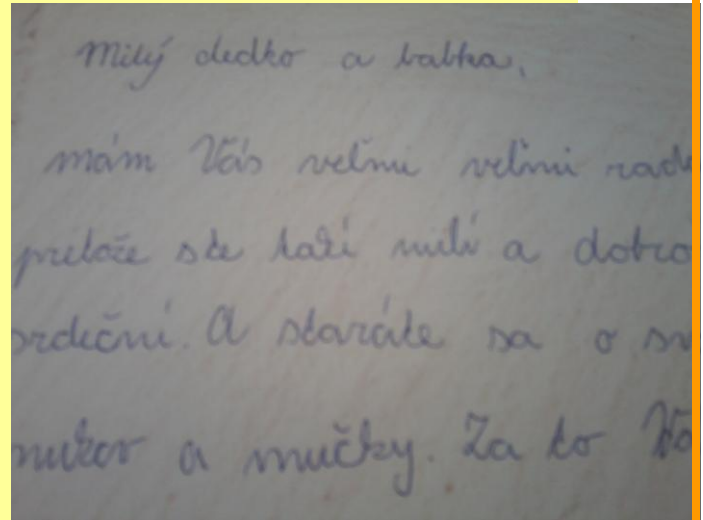 Milý dedko a babka,
mám Vás veľmi veľmi rada
pretože ste takí milí a dobro
srdeční. A staráte sa o sv
nukov a nučky. Za to Vá